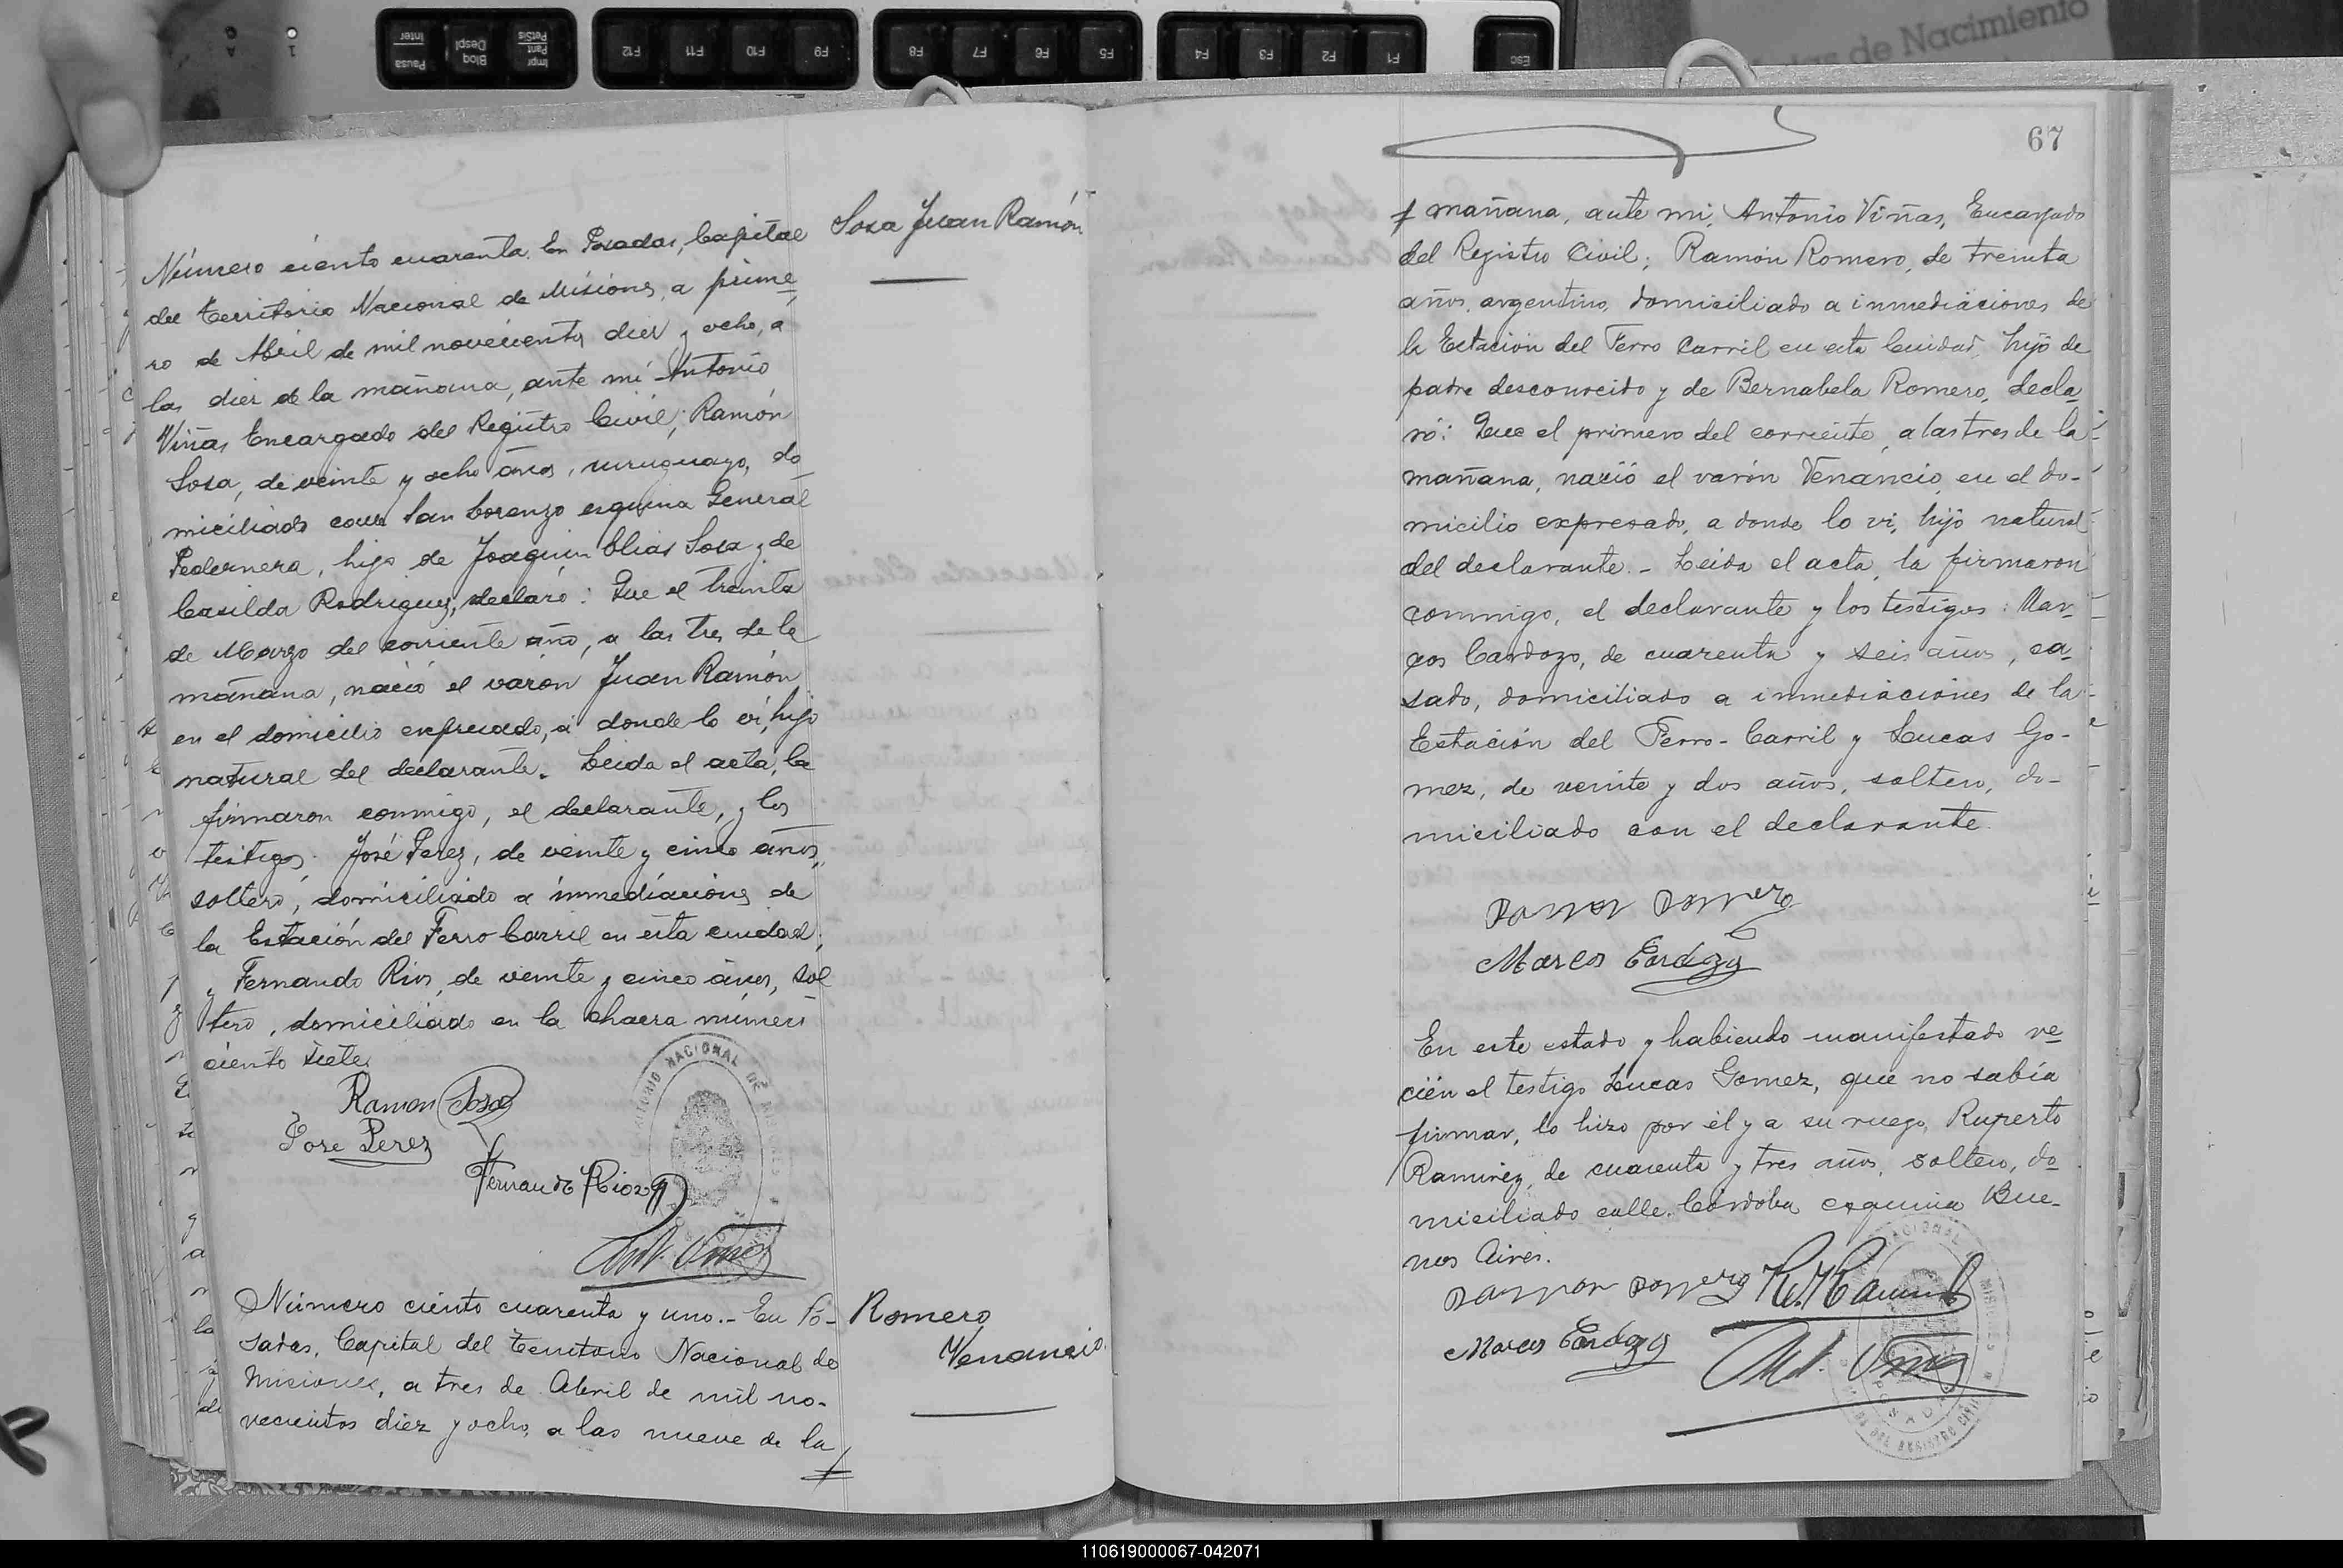 Sosa Juan Ramón
Número ciento cuarenta. En Posadas, Capital
del Territorio Nacional de Misiones, a prime
ro de Abril de mil novecientos diez y ocho, a
las diez de la mañana, ante mí Antonio
Viñas Encargado del Registro Civil; Ramón
Sosa, de veinte y ocho años, uruguayo, do
miciliado calle San Lorenzo esquina General
Pedernera, hijo de Joaquin Elias Sosa y de
Casilda Rodriguez, declaró: Que el treinta
de Marzo del corriente año, a las tres de la
mañana, nació el varón Juan Ramón
en el domicilio expresado, a donde lo ví, hijo
natural del declarante. Leida el acta, la
firmaron conmigo, el declarante, y los
testigos. José Perez, de veinte y cinco años,
soltero, domiciliado a inmediaciones de
la Estación del Ferro Carril en esta ciudad,
y Fernando Rios, de veinte y cinco años, sol
tero, domiciliado en la chacra número
ciento siete.
Ramon Sosa
Jose Perez
Fernando Rios
Ant. Viñas
Romero
Venancio
Número ciento cuarenta y uno.- En Po-
sadas, Capital del Territorio Nacional de
Misiones, a tres de Abril de mil no-
vecientos diez y ocho, a las nueve de la
67
mañana, ante mi, Antonio Viñas, Encargado
del Registro Civil; Ramón Romero, de treinta
años, argentino, domiciliado a inmediaciones de
la Estación del Ferro Carril en esta Ciudad, hijo de
padre desconocido y de Bernabela Romero, decla
ró: Que el primero del corriente, a las tres de la
mañana, nació el varón Venancio, en el do-
micilio expresado, a donde lo vi, hijo natural
del declarante.- Leida el acta, la firmaron
conmigo, el declarante y los testigos: Mar
cos Cardozo, de cuarenta y seis años, ca
sado, domiciliado a inmediaciones de la
Estación del Ferro-Carril y Lucas Go-
mez, de veinte y dos años, soltero, do-
miciliado con el declarante
Ramon Romero
Marcos Cardozo
En este estado y habiendo manifestado re
cién el testigo Lucas Gomez, que no sabía
firmar, lo hizo por él y a su ruego, Ruperto
Ramirez, de cuarenta y tres años, soltero, do
miciliado calle Córdoba esquina Bue-
nos Aires.
Ramon Romero
Marcos Cardozo
Ant. Viñas
Esc
F1
F2
F3
F4
F5
F6
F7
F8
F9
F10
F11
F12
Impr
Pant
PetSis
Bloq
Despl
Pausa
Inter
de Nacimiento
110619000067-042071